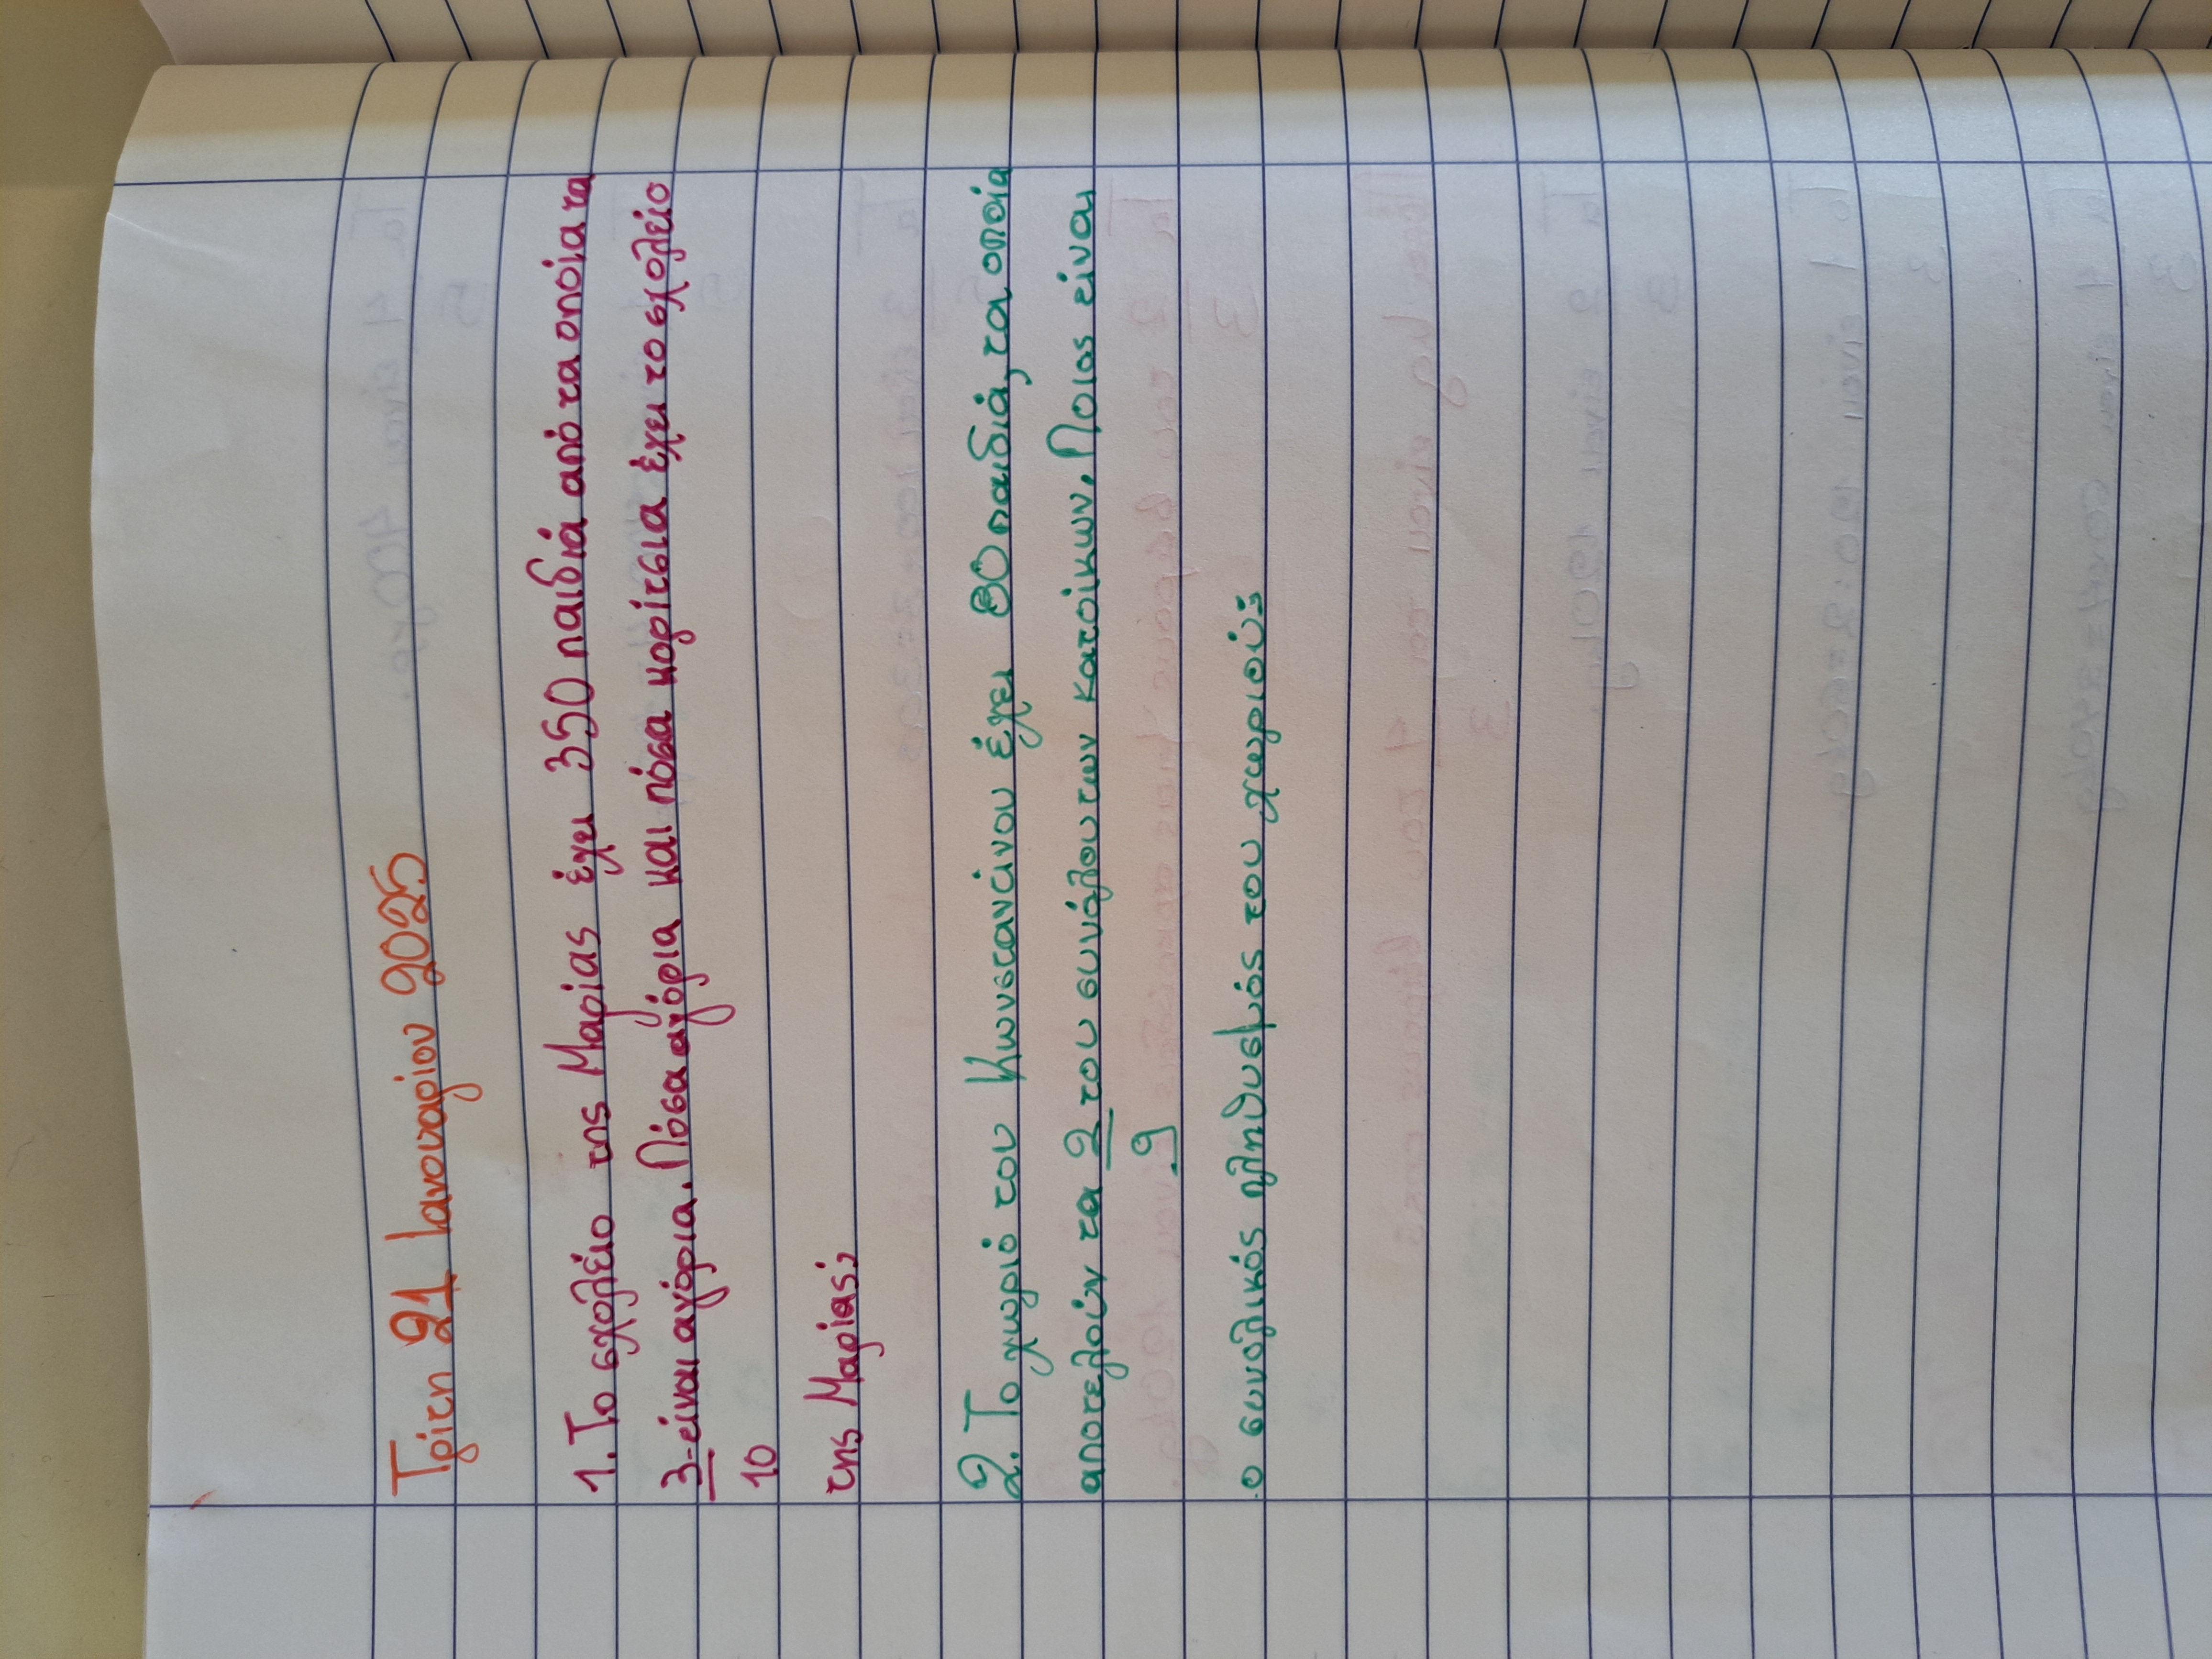 Τρίτη 21 Ιανουαρίου 2025
1. Το σχολείο της Μαρίας έχει 350 παιδιά από τα οποία τα
3 είναι αγόρια. Πόσα αγόρια και πόσα κορίτσια έχει το σχολείο
10
της Μαρίας;
2. Το χωριό του Κωνσταντίνου έχει 80 παιδιά, τα οποία
αποτελούν τα 2 του συνόλου των κατοίκων. Ποιος είναι
9
ο συνολικός πληθυσμός του χωριού;